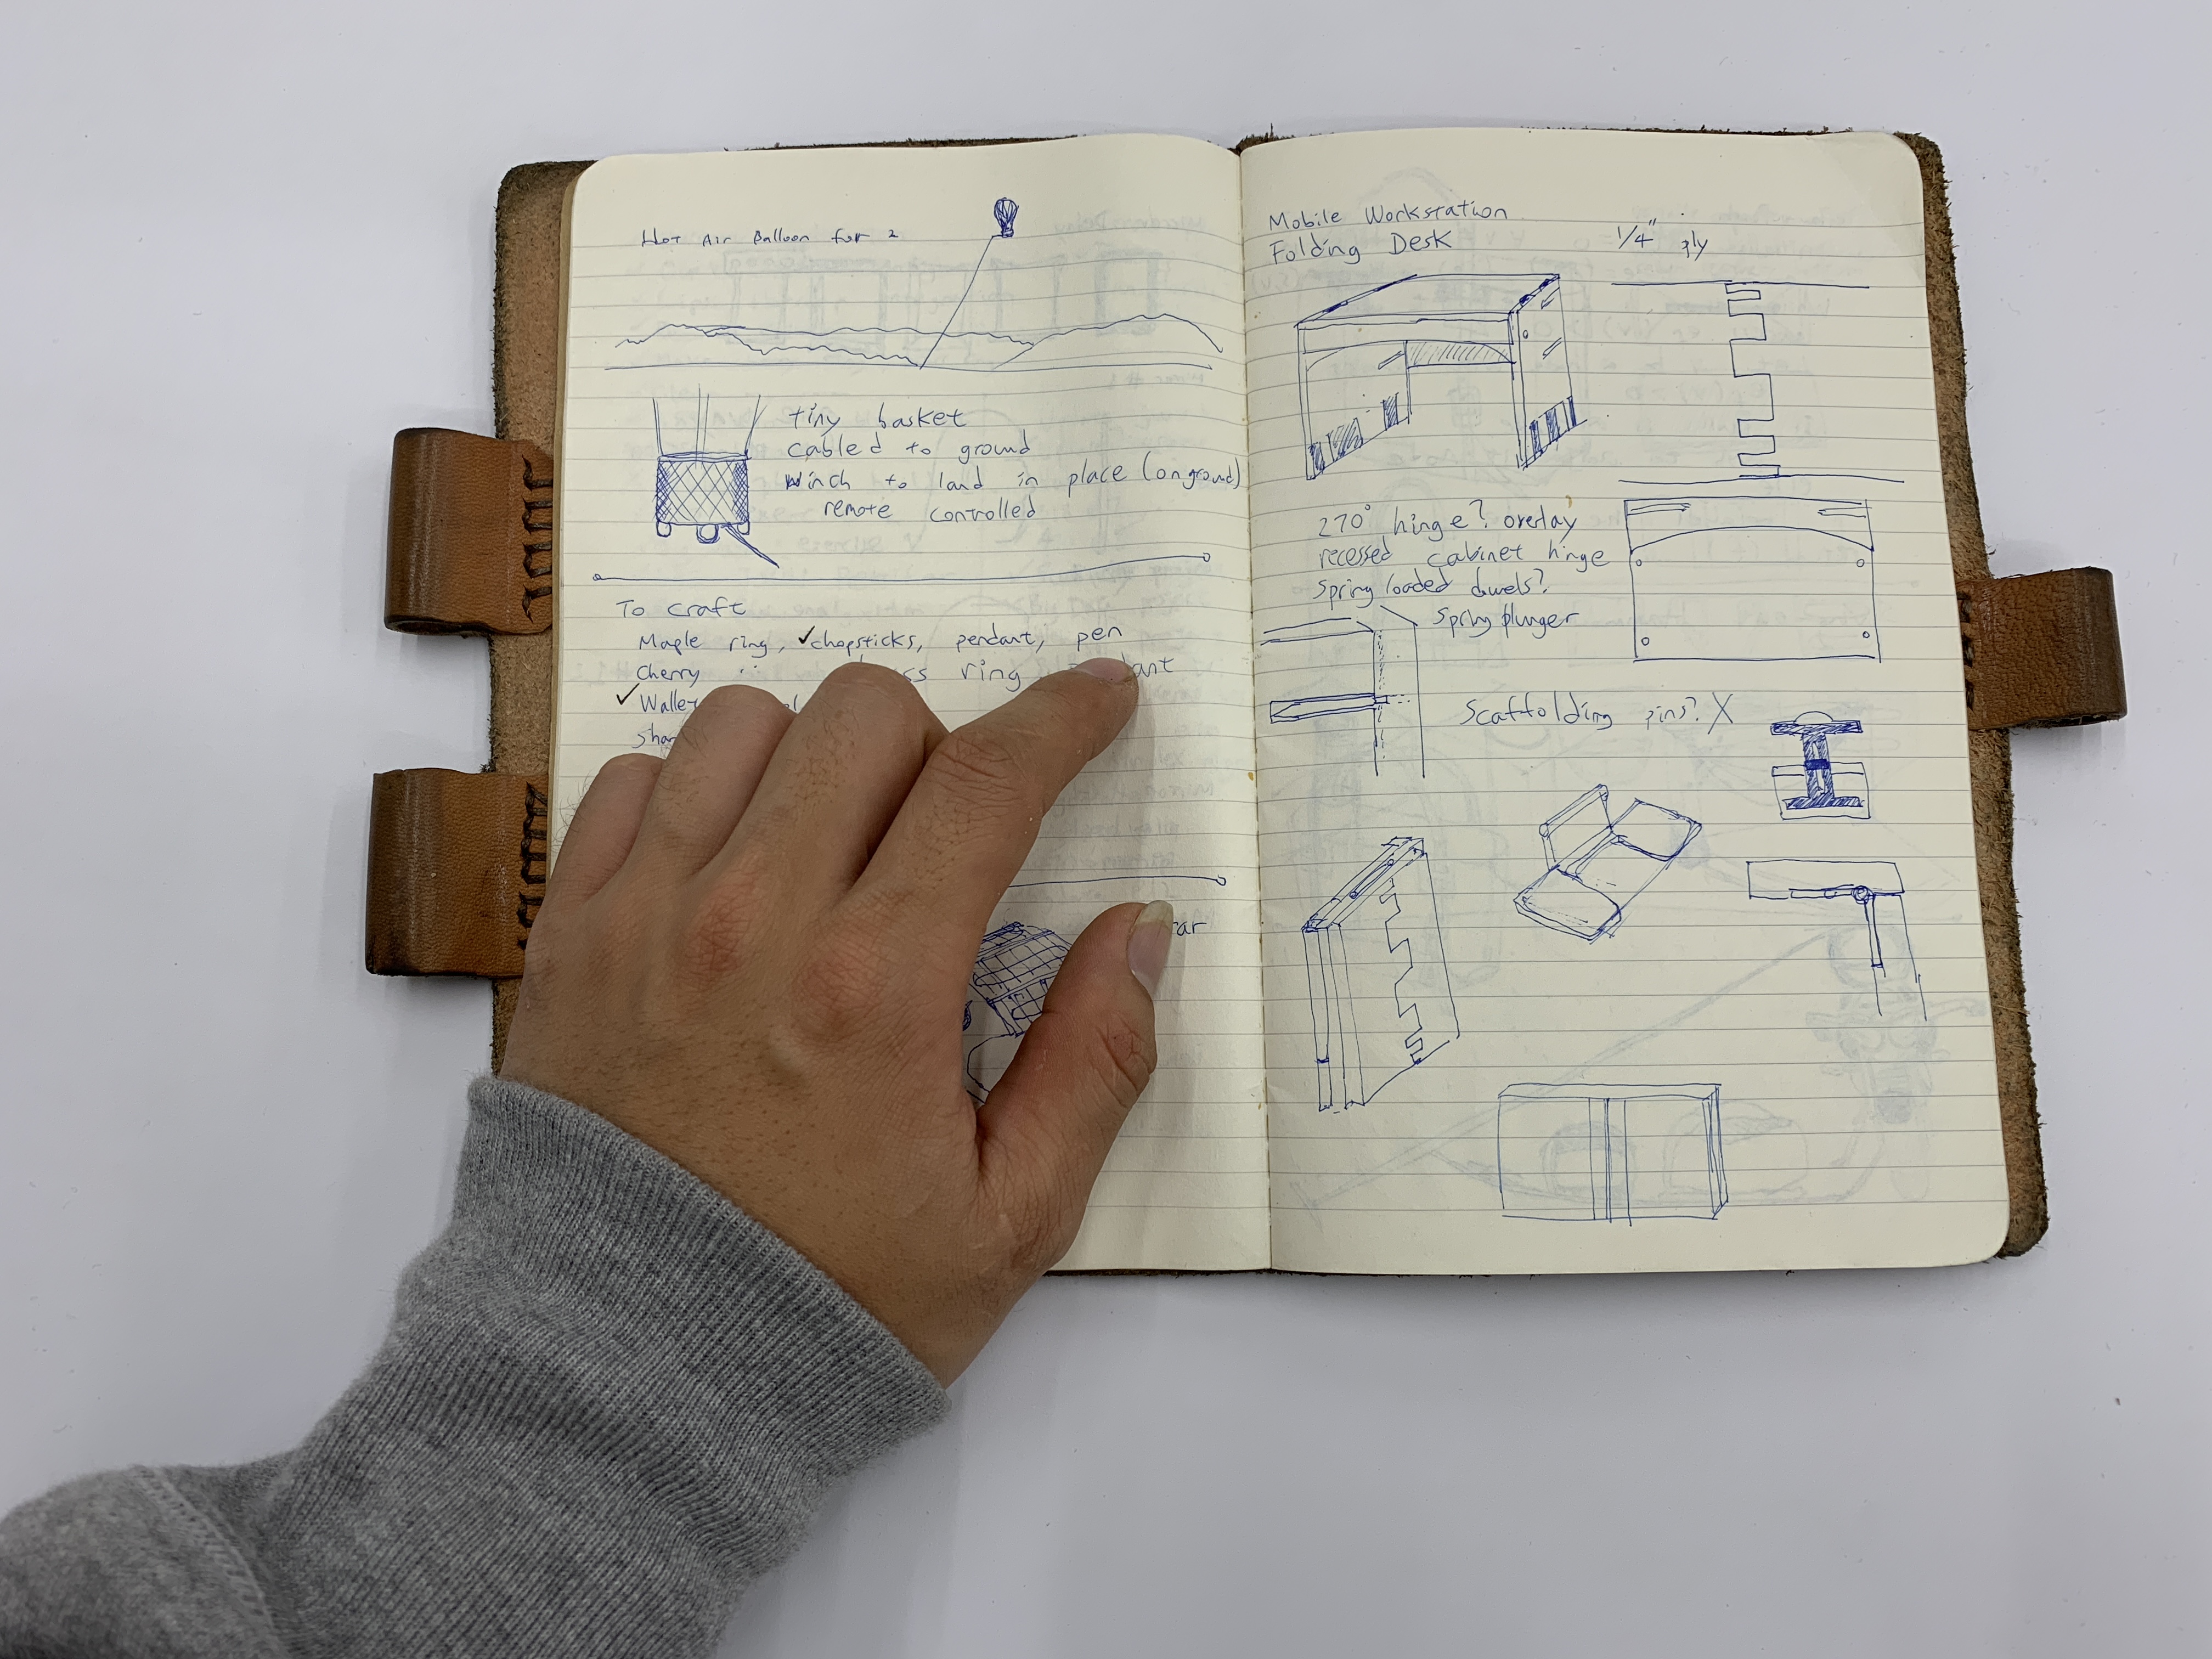 Hot Air Balloon for 2
tiny basket
cabled to ground
winch to land in place (on ground)
remote controlled
To craft
Maple ring, ✓chopsticks, pendant, pen
Cherry ring
✓ Wallet
Mobile Workstation
Folding Desk
1/4" ply
270° hinge? overlay
recessed cabinet hinge
Spring loaded dowels?
Spring plunger
Scaffolding pins? X